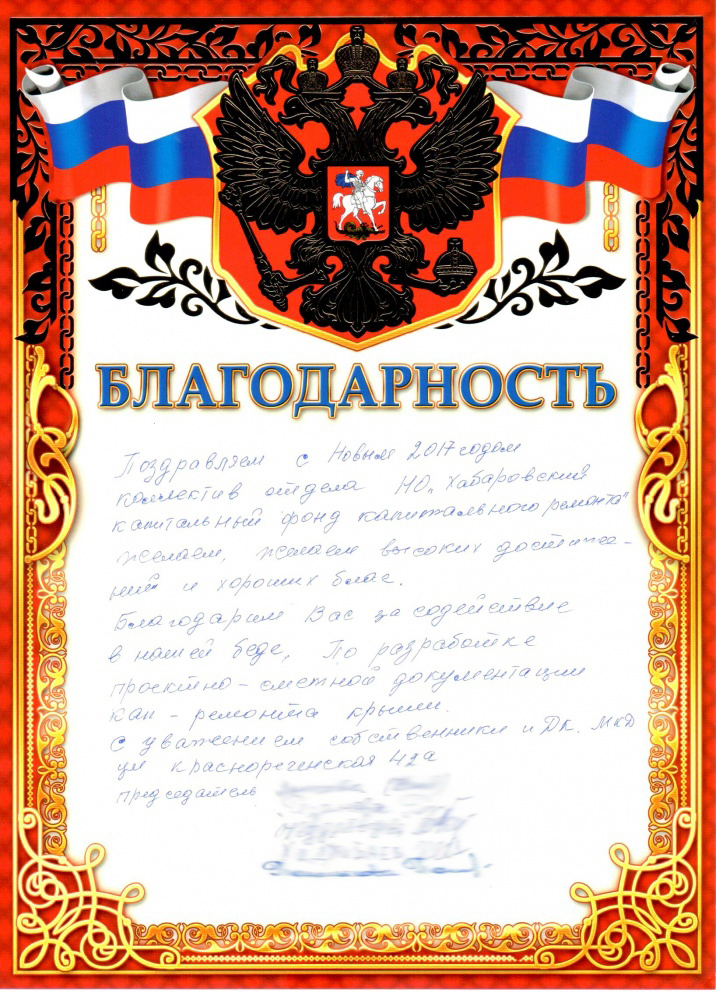 БЛАГОДАРНОСТЬ
Поздравляем с Новым 2017 годом
коллектив отдела НО „Хабаровский
капитальный фонд капитального ремонта"
желаем, желаем высоких достиже-
ний и хороших благ.
Благодарим Вас за содействие
в нашей беде, По разработке
проектно-сметной документации
кап-ремонта крыши.
С уважением собственники и ДК. МКД
ул Краснореченская 42а
председатель